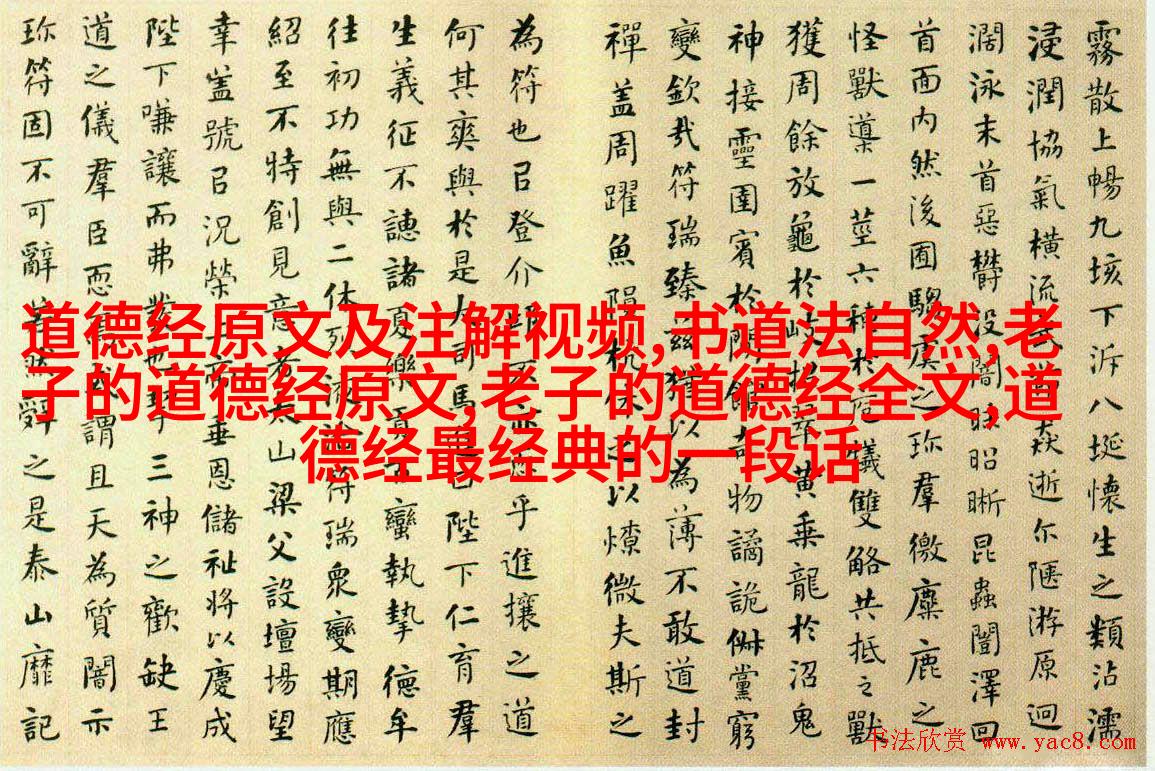 霧散上暢九垓下泝八埏懷生之類沾濡
浸潤協氣橫流武節猋逝尔陿游原迥
濶泳末首惡欝没闇昧昭晰昆蟲闓澤回
首面内然後囿騶虞之珍羣徼麋鹿之
怪獸導一莖六穂於庖犧雙觡共抵之獸
獲周餘放龜於岐招翠黄乘龍於沼鬼
神接靈圉賓於閒館奇物譎詭俶儻窮
變欽哉符瑞臻兹猶以為薄不敢道封
禪盖周躍魚隕杭休之以燎微夫斯之
為符也㠯登介丘不亦恧乎進攘之道
何其爽與於是大司馬進曰陛下仁育羣
生義征不譓諸夏樂貢百蠻執摯德牟
往初功無與二休烈液洽符瑞衆變期應
紹至不特創見意者太山梁父設壇場望
幸盖號㠯況榮上帝垂恩儲祉将以慶成
陛下嗛讓而弗發也挈三神之歡缺王
道之儀羣臣恧焉或謂且天為質闇示
珎符固不可辭若然辭之是泰山靡記
道德经原文及注解视频,书道法自然,老
子的道德经原文,老子的道德经全文,道
德经最经典的一段话
书法欣赏 www.yac8.com